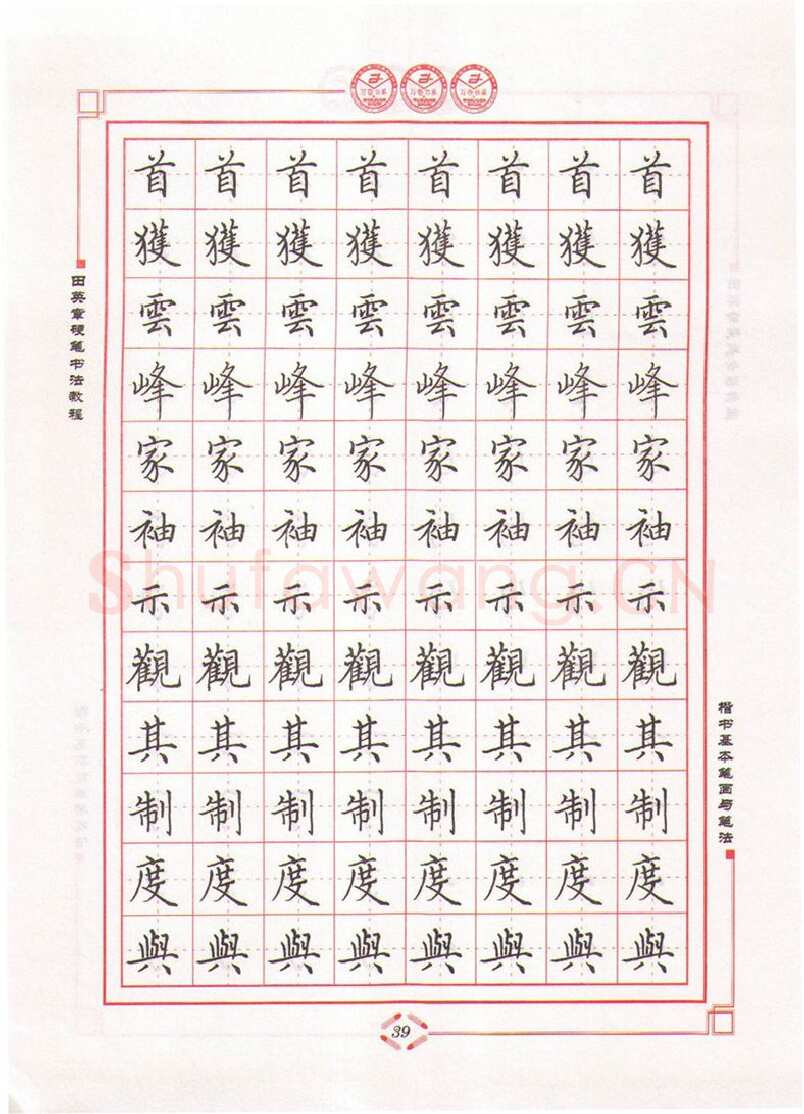 首首首首首首首首
獲獲獲獲獲獲獲獲
雲雲雲雲雲雲雲雲
峰峰峰峰峰峰峰峰
家家家家家家家家
袖袖袖袖袖袖袖袖
示示示示示示示示
觀觀觀觀觀觀觀觀
其其其其其其其其
制制制制制制制制
度度度度度度度度
與與與與與與與與
田英章硬笔书法教程
楷书基本笔画与笔法
Shufawang.CN
39